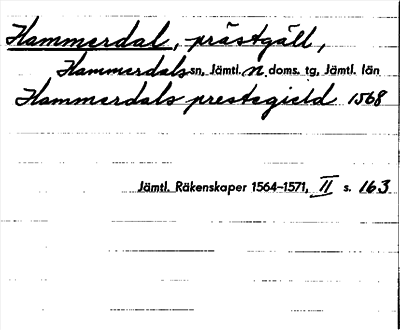 Hammerdal, prästgäll,
Hammerdals sn, Jämtl. n doms. tg, Jämtl. län
Hammerdals prestegield 1568
Jämtl. Räkenskaper 1564–1571, II s. 163